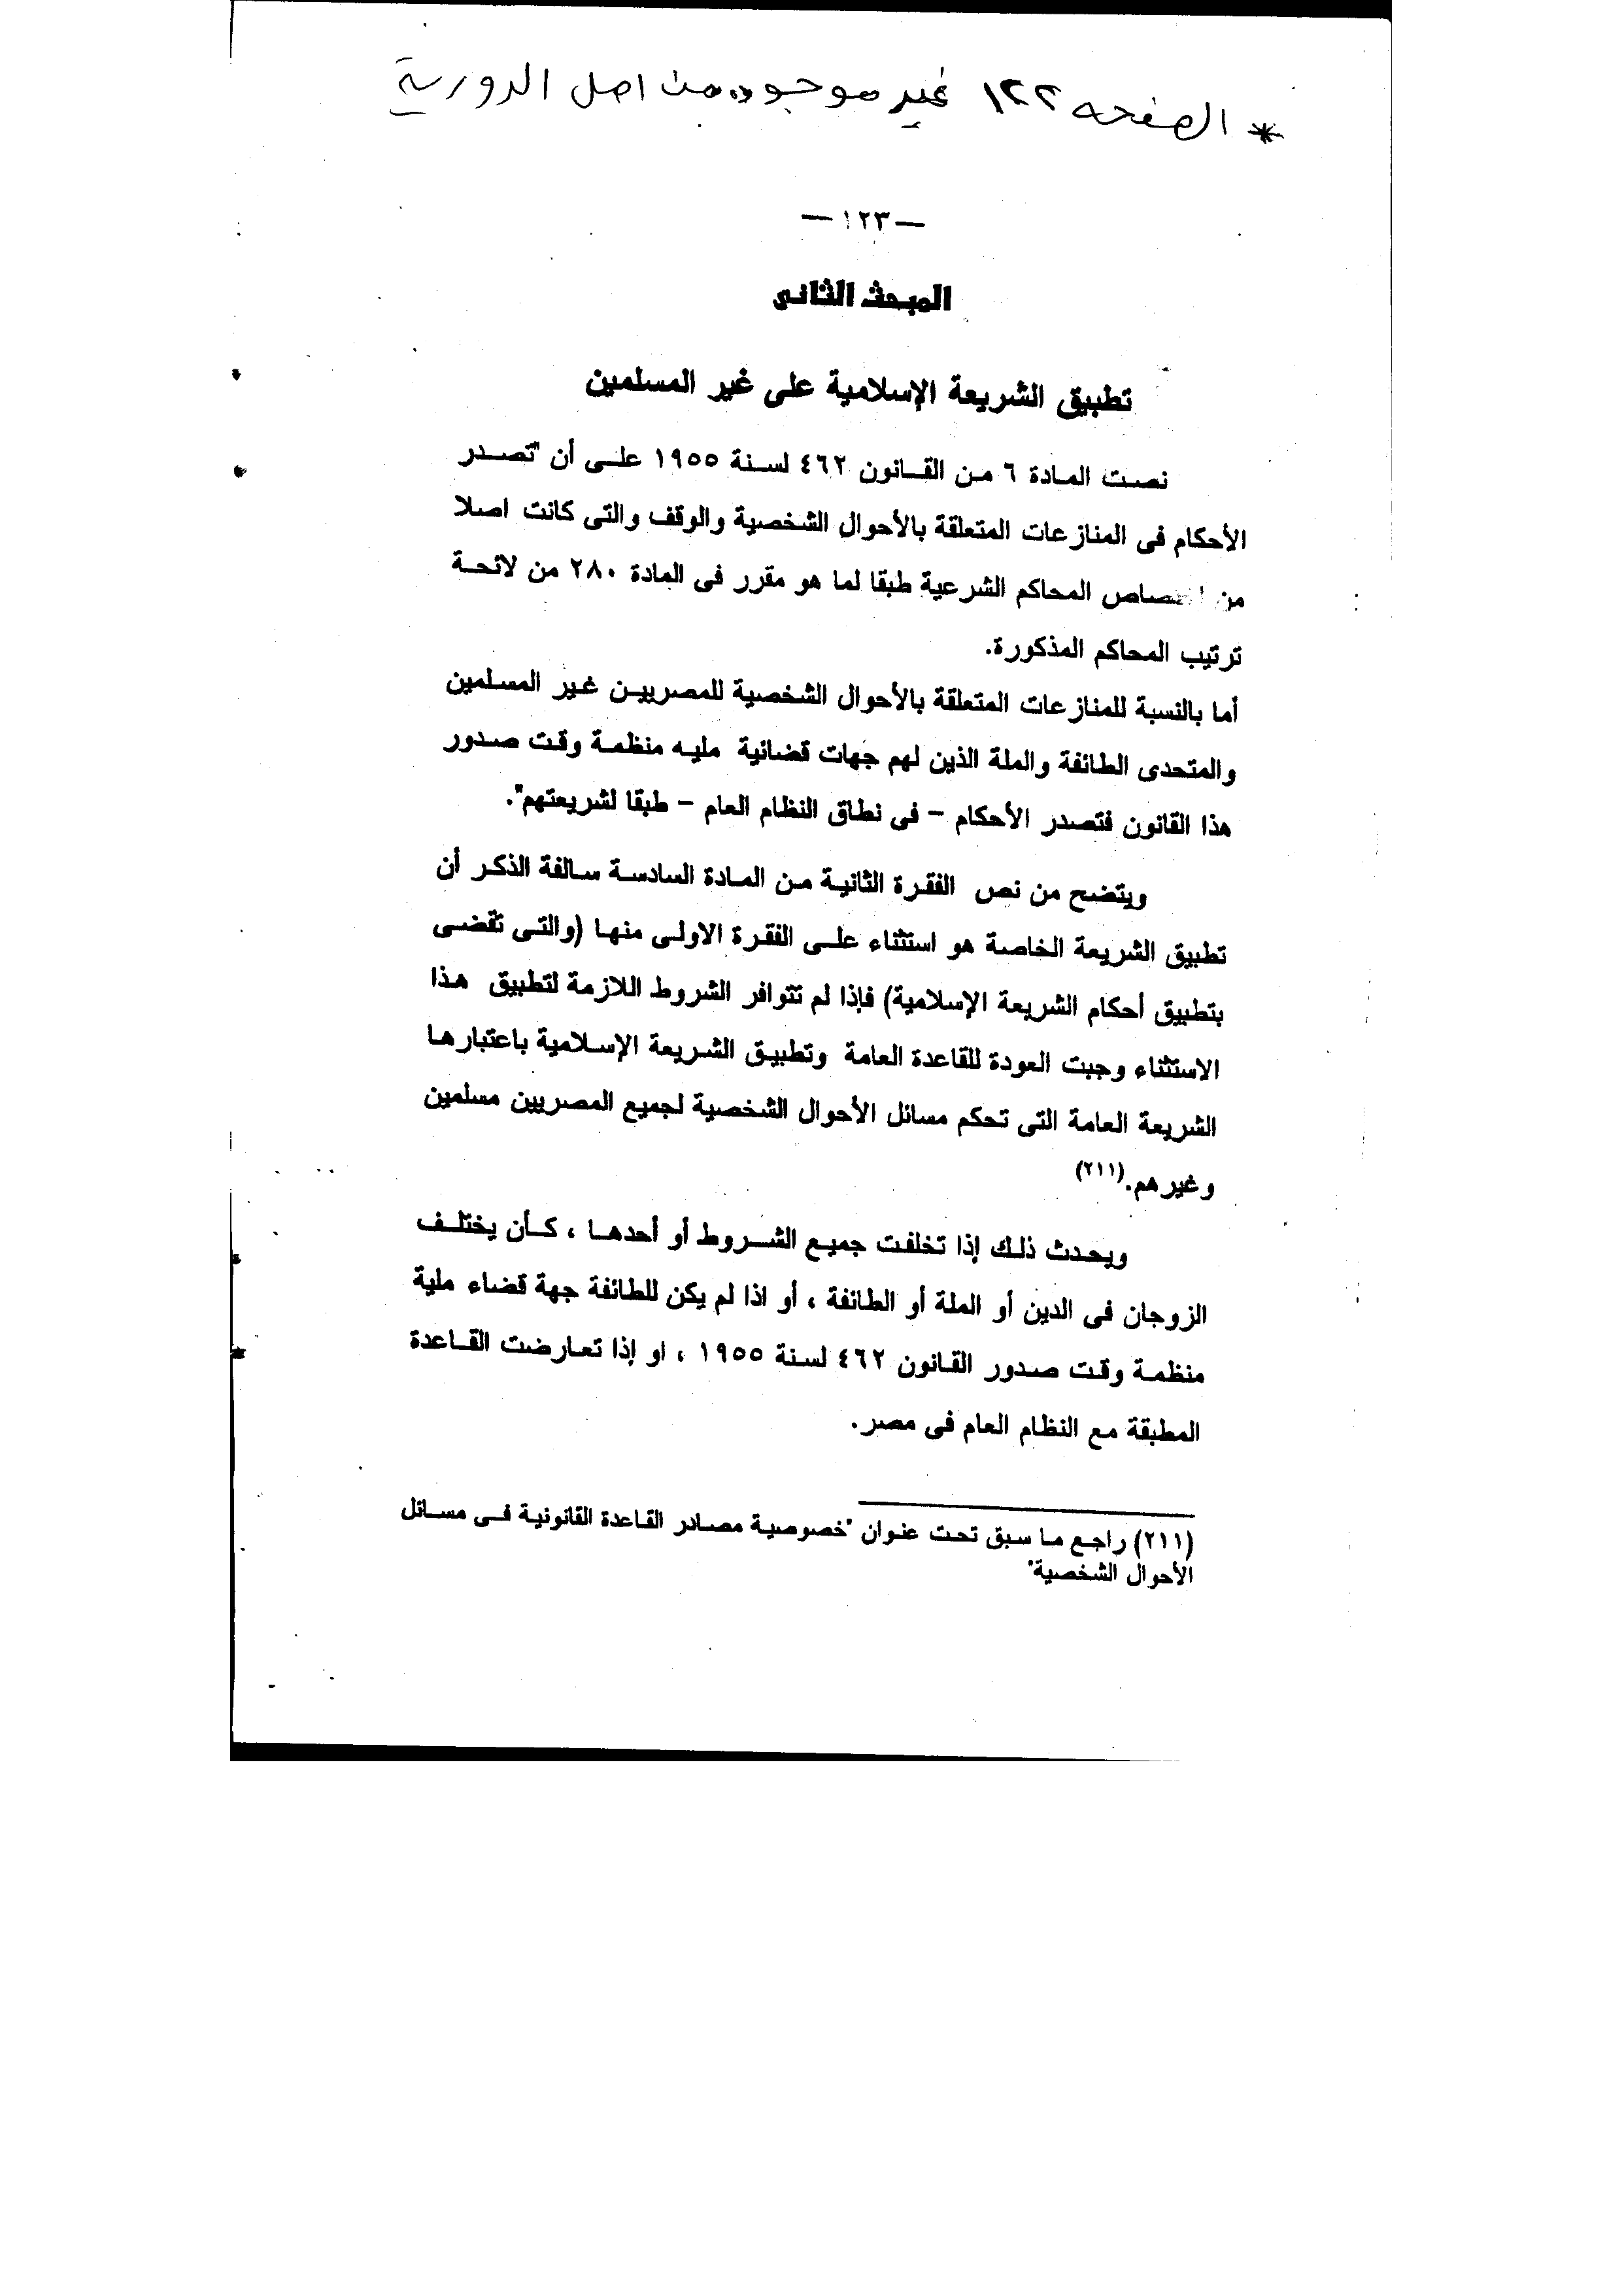 * الصفحه ١٢٢ غير موجوده من اصل الدورية
— ١٢٣ —
المبحث الثانى
تطبيق الشريعة الإسلامية على غير المسلمين
نصت المادة ٦ من القانون ٤٦٢ لسنة ١٩٥٥ على أن "تصدر
الأحكام فى المنازعات المتعلقة بالأحوال الشخصية والوقف والتى كانت اصلا
من المحاكم الشرعية طبقا لما هو مقرر فى المادة ٢٨٠ من لائحة
ترتيب المحاكم المذكورة.
أما بالنسبة للمنازعات المتعلقة بالأحوال الشخصية للمصريين غير المسلمين
والمتحدى الطائفة والملة الذين لهم جهات قضائية مليه منظمة وقت صدور
هذا القانون فتصدر الأحكام – فى نطاق النظام العام – طبقا لشريعتهم".
ويتضح من نص الفقرة الثانية من المادة السادسة سالفة الذكر أن
تطبيق الشريعة الخاصة هو استثناء على الفقرة الاولى منها (والتى تقضى
بتطبيق أحكام الشريعة الإسلامية) فإذا لم تتوافر الشروط اللازمة لتطبيق هذا
الاستثناء وجبت العودة للقاعدة العامة وتطبيق الشريعة الإسلامية باعتبارها
الشريعة العامة التى تحكم مسائل الأحوال الشخصية لجميع المصريين مسلمين
وغيرهم.(٢١١)
ويحدث ذلك إذا تخلفت جميع الشروط أو أحدها ، كأن يختلف
الزوجان فى الدين أو الملة أو الطائفة ، أو اذا لم يكن للطائفة جهة قضاء ملية
منظمة وقت صدور القانون ٤٦٢ لسنة ١٩٥٥ ، او إذا تعارضت القاعدة
المطبقة مع النظام العام فى مصر.
(٢١١) راجع ما سبق تحت عنوان "خصوصية مصادر القاعدة القانونية فى مسائل
الأحوال الشخصية"